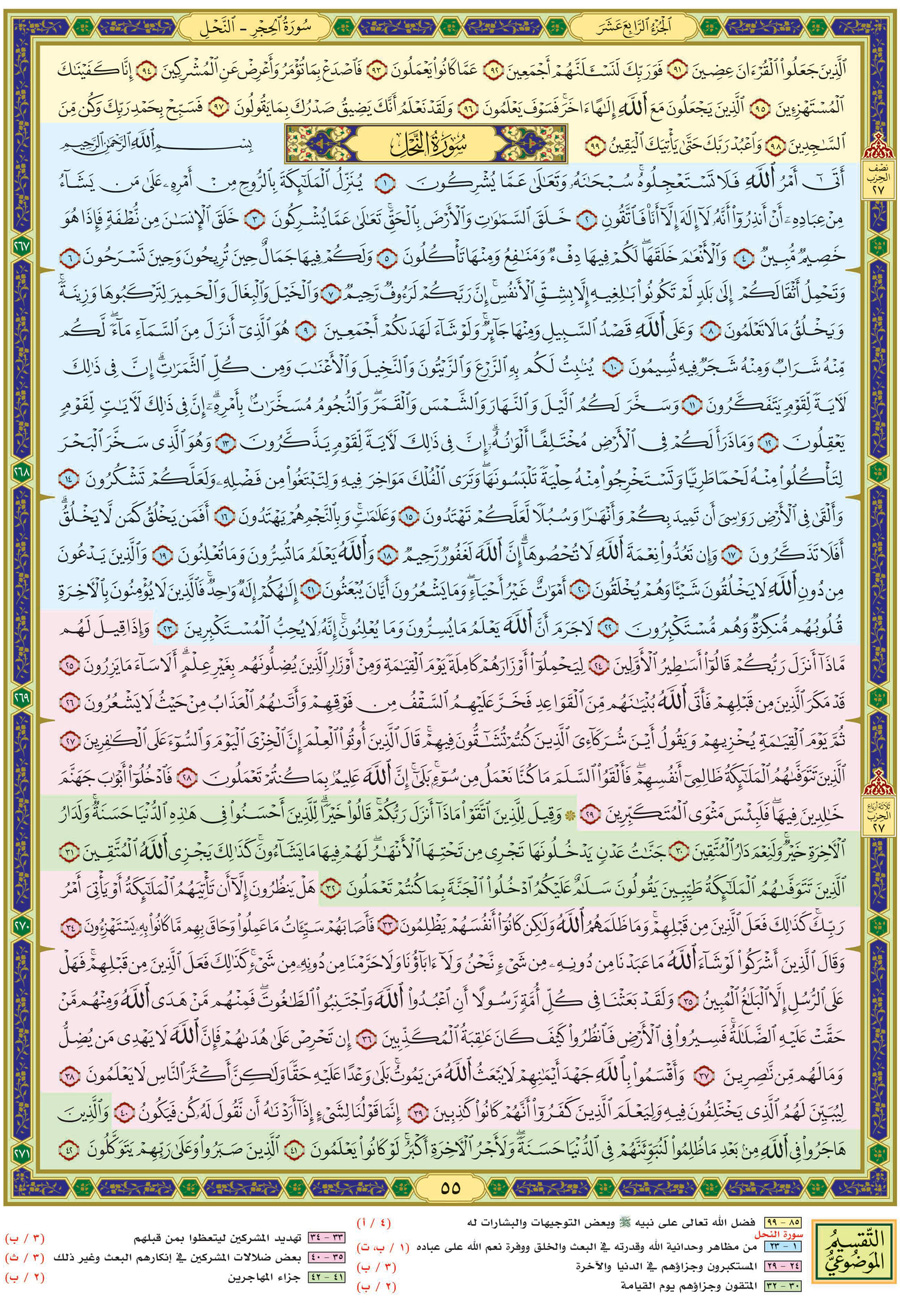 الجزء الرابع عشر
سورة الحجر - النحل
الَّذِينَ جَعَلُوا الْقُرْءَانَ عِضِينَ ٩١ فَوَرَبِّكَ لَنَسْـَٔلَنَّهُمْ أَجْمَعِينَ ٩٢ عَمَّا كَانُوا يَعْمَلُونَ ٩٣ فَاصْدَعْ بِمَا تُؤْمَرُ وَأَعْرِضْ عَنِ الْمُشْرِكِينَ ٩٤ إِنَّا كَفَيْنَٰكَ
الْمُسْتَهْزِءِينَ ٩٥ الَّذِينَ يَجْعَلُونَ مَعَ اللَّهِ إِلَٰهًا ءَاخَرَ ۚ فَسَوْفَ يَعْلَمُونَ ٩٦ وَلَقَدْ نَعْلَمُ أَنَّكَ يَضِيقُ صَدْرُكَ بِمَا يَقُولُونَ ٩٧ فَسَبِّحْ بِحَمْدِ رَبِّكَ وَكُن مِّنَ
السَّٰجِدِينَ ٩٨ وَاعْبُدْ رَبَّكَ حَتَّىٰ يَأْتِيَكَ الْيَقِينُ ٩٩
سُورَةُ النَّحْلِ
بِسْمِ اللَّهِ الرَّحْمَٰنِ الرَّحِيمِ
أَتَىٰٓ أَمْرُ اللَّهِ فَلَا تَسْتَعْجِلُوهُ ۚ سُبْحَٰنَهُۥ وَتَعَٰلَىٰ عَمَّا يُشْرِكُونَ ١ يُنَزِّلُ الْمَلَٰٓئِكَةَ بِالرُّوحِ مِنْ أَمْرِهِۦ عَلَىٰ مَن يَشَآءُ
مِنْ عِبَادِهِۦٓ أَنْ أَنذِرُوٓا أَنَّهُۥ لَآ إِلَٰهَ إِلَّآ أَنَا۠ فَاتَّقُونِ ٢ خَلَقَ السَّمَٰوَٰتِ وَالْأَرْضَ بِالْحَقِّ ۚ تَعَٰلَىٰ عَمَّا يُشْرِكُونَ ٣ خَلَقَ الْإِنسَٰنَ مِن نُّطْفَةٍ فَإِذَا هُوَ
خَصِيمٌ مُّبِينٌ ٤ وَالْأَنْعَٰمَ خَلَقَهَا ۗ لَكُمْ فِيهَا دِفْءٌ وَمَنَٰفِعُ وَمِنْهَا تَأْكُلُونَ ٥ وَلَكُمْ فِيهَا جَمَالٌ حِينَ تُرِيحُونَ وَحِينَ تَسْرَحُونَ ٦
وَتَحْمِلُ أَثْقَالَكُمْ إِلَىٰ بَلَدٍ لَّمْ تَكُونُوا بَٰلِغِيهِ إِلَّا بِشِقِّ الْأَنفُسِ ۚ إِنَّ رَبَّكُمْ لَرَءُوفٌ رَّحِيمٌ ٧ وَالْخَيْلَ وَالْبِغَالَ وَالْحَمِيرَ لِتَرْكَبُوهَا وَزِينَةً ۚ
وَيَخْلُقُ مَا لَا تَعْلَمُونَ ٨ وَعَلَى اللَّهِ قَصْدُ السَّبِيلِ وَمِنْهَا جَآئِرٌ ۚ وَلَوْ شَآءَ لَهَدَىٰكُمْ أَجْمَعِينَ ٩ هُوَ الَّذِىٓ أَنزَلَ مِنَ السَّمَآءِ مَآءً ۖ لَّكُم
مِّنْهُ شَرَابٌ وَمِنْهُ شَجَرٌ فِيهِ تُسِيمُونَ ١٠ يُنۢبِتُ لَكُم بِهِ الزَّرْعَ وَالزَّيْتُونَ وَالنَّخِيلَ وَالْأَعْنَٰبَ وَمِن كُلِّ الثَّمَرَٰتِ ۗ إِنَّ فِى ذَٰلِكَ
لَءَايَةً لِّقَوْمٍ يَتَفَكَّرُونَ ١١ وَسَخَّرَ لَكُمُ الَّيْلَ وَالنَّهَارَ وَالشَّمْسَ وَالْقَمَرَ ۖ وَالنُّجُومُ مُسَخَّرَٰتٌۢ بِأَمْرِهِۦٓ ۗ إِنَّ فِى ذَٰلِكَ لَءَايَٰتٍ لِّقَوْمٍ
يَعْقِلُونَ ١٢ وَمَا ذَرَأَ لَكُمْ فِى الْأَرْضِ مُخْتَلِفًا أَلْوَٰنُهُۥٓ ۗ إِنَّ فِى ذَٰلِكَ لَءَايَةً لِّقَوْمٍ يَذَّكَّرُونَ ١٣ وَهُوَ الَّذِى سَخَّرَ الْبَحْرَ
لِتَأْكُلُوا مِنْهُ لَحْمًا طَرِيًّا وَتَسْتَخْرِجُوا مِنْهُ حِلْيَةً تَلْبَسُونَهَا وَتَرَى الْفُلْكَ مَوَاخِرَ فِيهِ وَلِتَبْتَغُوا مِن فَضْلِهِۦ وَلَعَلَّكُمْ تَشْكُرُونَ ١٤
وَأَلْقَىٰ فِى الْأَرْضِ رَوَٰسِىَ أَن تَمِيدَ بِكُمْ وَأَنْهَٰرًا وَسُبُلًا لَّعَلَّكُمْ تَهْتَدُونَ ١٥ وَعَلَٰمَٰتٍ ۚ وَبِالنَّجْمِ هُمْ يَهْتَدُونَ ١٦ أَفَمَن يَخْلُقُ كَمَن لَّا يَخْلُقُ ۗ
أَفَلَا تَذَكَّرُونَ ١٧ وَإِن تَعُدُّوا نِعْمَةَ اللَّهِ لَا تُحْصُوهَآ ۗ إِنَّ اللَّهَ لَغَفُورٌ رَّحِيمٌ ١٨ وَاللَّهُ يَعْلَمُ مَا تُسِرُّونَ وَمَا تُعْلِنُونَ ١٩ وَالَّذِينَ يَدْعُونَ
مِن دُونِ اللَّهِ لَا يَخْلُقُونَ شَيْـًٔا وَهُمْ يُخْلَقُونَ ٢٠ أَمْوَٰتٌ غَيْرُ أَحْيَآءٍ ۖ وَمَا يَشْعُرُونَ أَيَّانَ يُبْعَثُونَ ٢١ إِلَٰهُكُمْ إِلَٰهٌ وَٰحِدٌ ۚ فَالَّذِينَ لَا يُؤْمِنُونَ بِالْءَاخِرَةِ
قُلُوبُهُم مُّنكِرَةٌ وَهُم مُّسْتَكْبِرُونَ ٢٢ لَا جَرَمَ أَنَّ اللَّهَ يَعْلَمُ مَا يُسِرُّونَ وَمَا يُعْلِنُونَ ۚ إِنَّهُۥ لَا يُحِبُّ الْمُسْتَكْبِرِينَ ٢٣ وَإِذَا قِيلَ لَهُم
مَّاذَآ أَنزَلَ رَبُّكُمْ ۙ قَالُوٓا أَسَٰطِيرُ الْأَوَّلِينَ ٢٤ لِيَحْمِلُوٓا أَوْزَارَهُمْ كَامِلَةً يَوْمَ الْقِيَٰمَةِ ۙ وَمِنْ أَوْزَارِ الَّذِينَ يُضِلُّونَهُم بِغَيْرِ عِلْمٍ ۗ أَلَا سَآءَ مَا يَزِرُونَ ٢٥
قَدْ مَكَرَ الَّذِينَ مِن قَبْلِهِمْ فَأَتَى اللَّهُ بُنْيَٰنَهُم مِّنَ الْقَوَاعِدِ فَخَرَّ عَلَيْهِمُ السَّقْفُ مِن فَوْقِهِمْ وَأَتَىٰهُمُ الْعَذَابُ مِنْ حَيْثُ لَا يَشْعُرُونَ ٢٦
ثُمَّ يَوْمَ الْقِيَٰمَةِ يُخْزِيهِمْ وَيَقُولُ أَيْنَ شُرَكَآءِىَ الَّذِينَ كُنتُمْ تُشَٰٓقُّونَ فِيهِمْ ۚ قَالَ الَّذِينَ أُوتُوا الْعِلْمَ إِنَّ الْخِزْىَ الْيَوْمَ وَالسُّوٓءَ عَلَى الْكَٰفِرِينَ ٢٧
الَّذِينَ تَتَوَفَّىٰهُمُ الْمَلَٰٓئِكَةُ ظَالِمِىٓ أَنفُسِهِمْ ۖ فَأَلْقَوُا السَّلَمَ مَا كُنَّا نَعْمَلُ مِن سُوٓءٍۭ ۚ بَلَىٰٓ إِنَّ اللَّهَ عَلِيمٌۢ بِمَا كُنتُمْ تَعْمَلُونَ ٢٨ فَادْخُلُوٓا أَبْوَٰبَ جَهَنَّمَ
خَٰلِدِينَ فِيهَا ۖ فَلَبِئْسَ مَثْوَى الْمُتَكَبِّرِينَ ٢٩ ۞ وَقِيلَ لِلَّذِينَ اتَّقَوْا مَاذَآ أَنزَلَ رَبُّكُمْ ۚ قَالُوا خَيْرًا ۗ لِّلَّذِينَ أَحْسَنُوا فِى هَٰذِهِ الدُّنْيَا حَسَنَةٌ ۚ وَلَدَارُ
الْءَاخِرَةِ خَيْرٌ ۚ وَلَنِعْمَ دَارُ الْمُتَّقِينَ ٣٠ جَنَّٰتُ عَدْنٍ يَدْخُلُونَهَا تَجْرِى مِن تَحْتِهَا الْأَنْهَٰرُ ۖ لَهُمْ فِيهَا مَا يَشَآءُونَ ۚ كَذَٰلِكَ يَجْزِى اللَّهُ الْمُتَّقِينَ ٣١
الَّذِينَ تَتَوَفَّىٰهُمُ الْمَلَٰٓئِكَةُ طَيِّبِينَ ۙ يَقُولُونَ سَلَٰمٌ عَلَيْكُمُ ادْخُلُوا الْجَنَّةَ بِمَا كُنتُمْ تَعْمَلُونَ ٣٢ هَلْ يَنظُرُونَ إِلَّآ أَن تَأْتِيَهُمُ الْمَلَٰٓئِكَةُ أَوْ يَأْتِىَ أَمْرُ
رَبِّكَ ۚ كَذَٰلِكَ فَعَلَ الَّذِينَ مِن قَبْلِهِمْ ۚ وَمَا ظَلَمَهُمُ اللَّهُ وَلَٰكِن كَانُوٓا أَنفُسَهُمْ يَظْلِمُونَ ٣٣ فَأَصَابَهُمْ سَيِّـَٔاتُ مَا عَمِلُوا وَحَاقَ بِهِم مَّا كَانُوا بِهِۦ يَسْتَهْزِءُونَ ٣٤
وَقَالَ الَّذِينَ أَشْرَكُوا لَوْ شَآءَ اللَّهُ مَا عَبَدْنَا مِن دُونِهِۦ مِن شَىْءٍ نَّحْنُ وَلَآ ءَابَآؤُنَا وَلَا حَرَّمْنَا مِن دُونِهِۦ مِن شَىْءٍ ۚ كَذَٰلِكَ فَعَلَ الَّذِينَ مِن قَبْلِهِمْ ۚ فَهَلْ
عَلَى الرُّسُلِ إِلَّا الْبَلَٰغُ الْمُبِينُ ٣٥ وَلَقَدْ بَعَثْنَا فِى كُلِّ أُمَّةٍ رَّسُولًا أَنِ اعْبُدُوا اللَّهَ وَاجْتَنِبُوا الطَّٰغُوتَ ۖ فَمِنْهُم مَّنْ هَدَى اللَّهُ وَمِنْهُم مَّنْ
حَقَّتْ عَلَيْهِ الضَّلَٰلَةُ ۚ فَسِيرُوا فِى الْأَرْضِ فَانظُرُوا كَيْفَ كَانَ عَٰقِبَةُ الْمُكَذِّبِينَ ٣٦ إِن تَحْرِصْ عَلَىٰ هُدَىٰهُمْ فَإِنَّ اللَّهَ لَا يَهْدِى مَن يُضِلُّ ۖ
وَمَا لَهُم مِّن نَّٰصِرِينَ ٣٧ وَأَقْسَمُوا بِاللَّهِ جَهْدَ أَيْمَٰنِهِمْ ۙ لَا يَبْعَثُ اللَّهُ مَن يَمُوتُ ۚ بَلَىٰ وَعْدًا عَلَيْهِ حَقًّا وَلَٰكِنَّ أَكْثَرَ النَّاسِ لَا يَعْلَمُونَ ٣٨
لِيُبَيِّنَ لَهُمُ الَّذِى يَخْتَلِفُونَ فِيهِ وَلِيَعْلَمَ الَّذِينَ كَفَرُوٓا أَنَّهُمْ كَانُوا كَٰذِبِينَ ٣٩ إِنَّمَا قَوْلُنَا لِشَىْءٍ إِذَآ أَرَدْنَٰهُ أَن نَّقُولَ لَهُۥ كُن فَيَكُونُ ٤٠ وَالَّذِينَ
هَاجَرُوا فِى اللَّهِ مِنۢ بَعْدِ مَا ظُلِمُوا لَنُبَوِّئَنَّهُمْ فِى الدُّنْيَا حَسَنَةً ۖ وَلَأَجْرُ الْءَاخِرَةِ أَكْبَرُ ۚ لَوْ كَانُوا يَعْلَمُونَ ٤١ الَّذِينَ صَبَرُوا وَعَلَىٰ رَبِّهِمْ يَتَوَكَّلُونَ ٤٢
نصف الحزب ٢٧
ثلاثة أرباع الحزب ٢٧
٢٦٧
٢٦٨
٢٦٩
٢٧٠
٢٧١
٥٥
التقسيم الموضوعي
٨٥ - ٩٩ فضل الله تعالى على نبيه ﷺ وبعض التوجيهات والبشارات له (٤ / أ)
سورة النحل
١ - ٢٣ من مظاهر وحدانية الله وقدرته في البعث والخلق ووفرة نعم الله على عباده (١ / ب، ت)
٢٤ - ٢٩ المستكبرون وجزاؤهم في الدنيا والآخرة (٣ / ب)
٣٠ - ٣٢ المتقون وجزاؤهم يوم القيامة (٢ / ب)
٣٣ - ٣٤ تهديد المشركين ليتعظوا بمن قبلهم (٣ / ب)
٣٥ - ٤٠ بعض ضلالات المشركين في إنكارهم البعث وغير ذلك (٣ / ث)
٤١ - ٤٢ جزاء المهاجرين (٢ / ب)